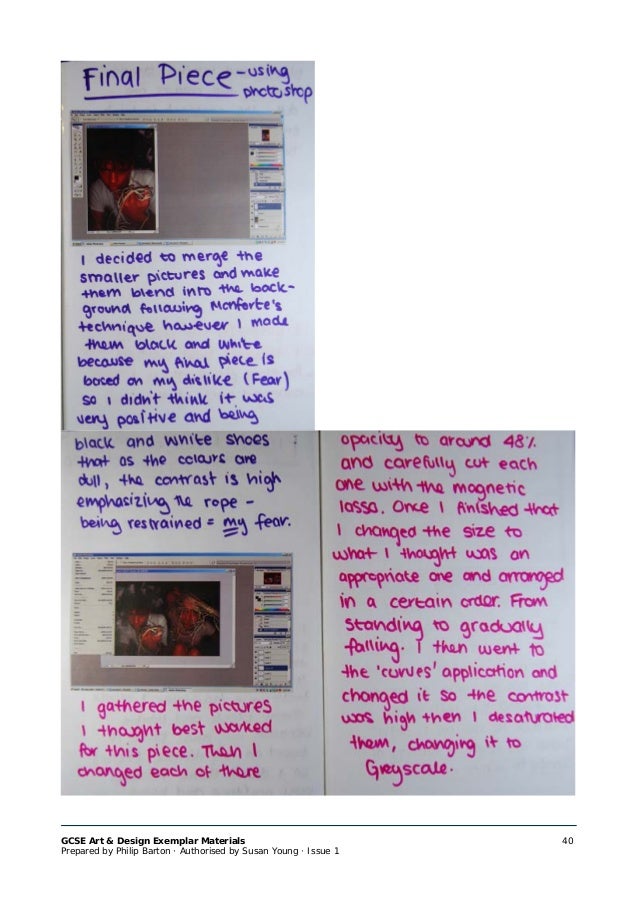 Final Piece - using
photoshop
I decided to merge the
smaller pictures and make
them blend into the back-
ground following Monforte's
technique however I made
them black and white
because my final piece is
based on my dislike (Fear)
so I didn't think it was
very positive and being
black and white shoes
that as the colours are
dull, the contrast is high
emphasizing the rope -
being restrained = my fear.
I gathered the pictures
I thought best worked
for this piece. Then I
changed each of there
opacity to around 48%
and carefully cut each
one with the magnetic
lasso. Once I finished that
I changed the size to
what I thought was an
appropriate one and arranged
in a certain order. From
standing to gradually
falling. I then went to
the 'curves' application and
changed it so the contrast
was high then I desaturated
them, changing it to
Greyscale.
GCSE Art & Design Exemplar Materials 40
Prepared by Philip Barton · Authorised by Susan Young · Issue 1